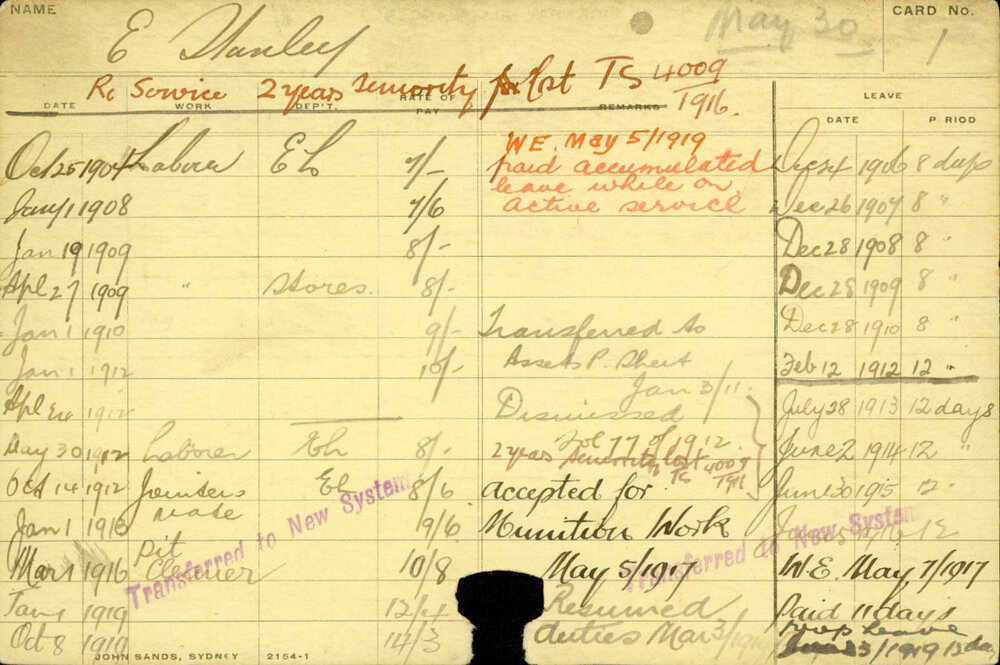 NAME
E Stanley
May 30
CARD No.
1
Re Service 2 years seniority lost TS 4009
1916.
DATE WORK DEP'T. RATE OF PAY REMARKS
LEAVE
DATE PERIOD
Oct 25 1904 Laborer E L 7/-
W.E. May 5/1919
paid accumulated
leave while on
active service
Dec 24 1906 8 days
Jany 1 1908 7/6
Dec 26 1907 8 "
Jan 19 1909 8/-
Dec 28 1908 8 "
Apl 27 1909 " Stores. 8/-
Dec 28 1909 8 "
Jan 1 1910 9/- Transferred to
Dec 28 1910 8 "
Jan 1 1912 10/- Assets P. Sheet
Jan 3/11
Feb 12 1912 12 "
Apl 1912 Dismissed
July 28 1913 12 days
May 30 1912 Laborer Eh 8/- Fol 77 of 1912
2 years seniority lost TS 4009
June 2 1914 12 "
Oct 14 1912 Jointers mate 8/6 accepted for
June 30 1915 12 "
Jan 1 1916 9/6 Munition Work
Mar 1 1916 Pit Cleaner 10/8 May 5/1917
W.E. May 7/1917
Transferred to New System
Transferred to New System
Jan 1 1919 12/4 Resumed
Paid 11 days
Oct 8 1919 14/3 duties Mar 3/
prop leave
3/1919
JOHN SANDS, SYDNEY 2154-1